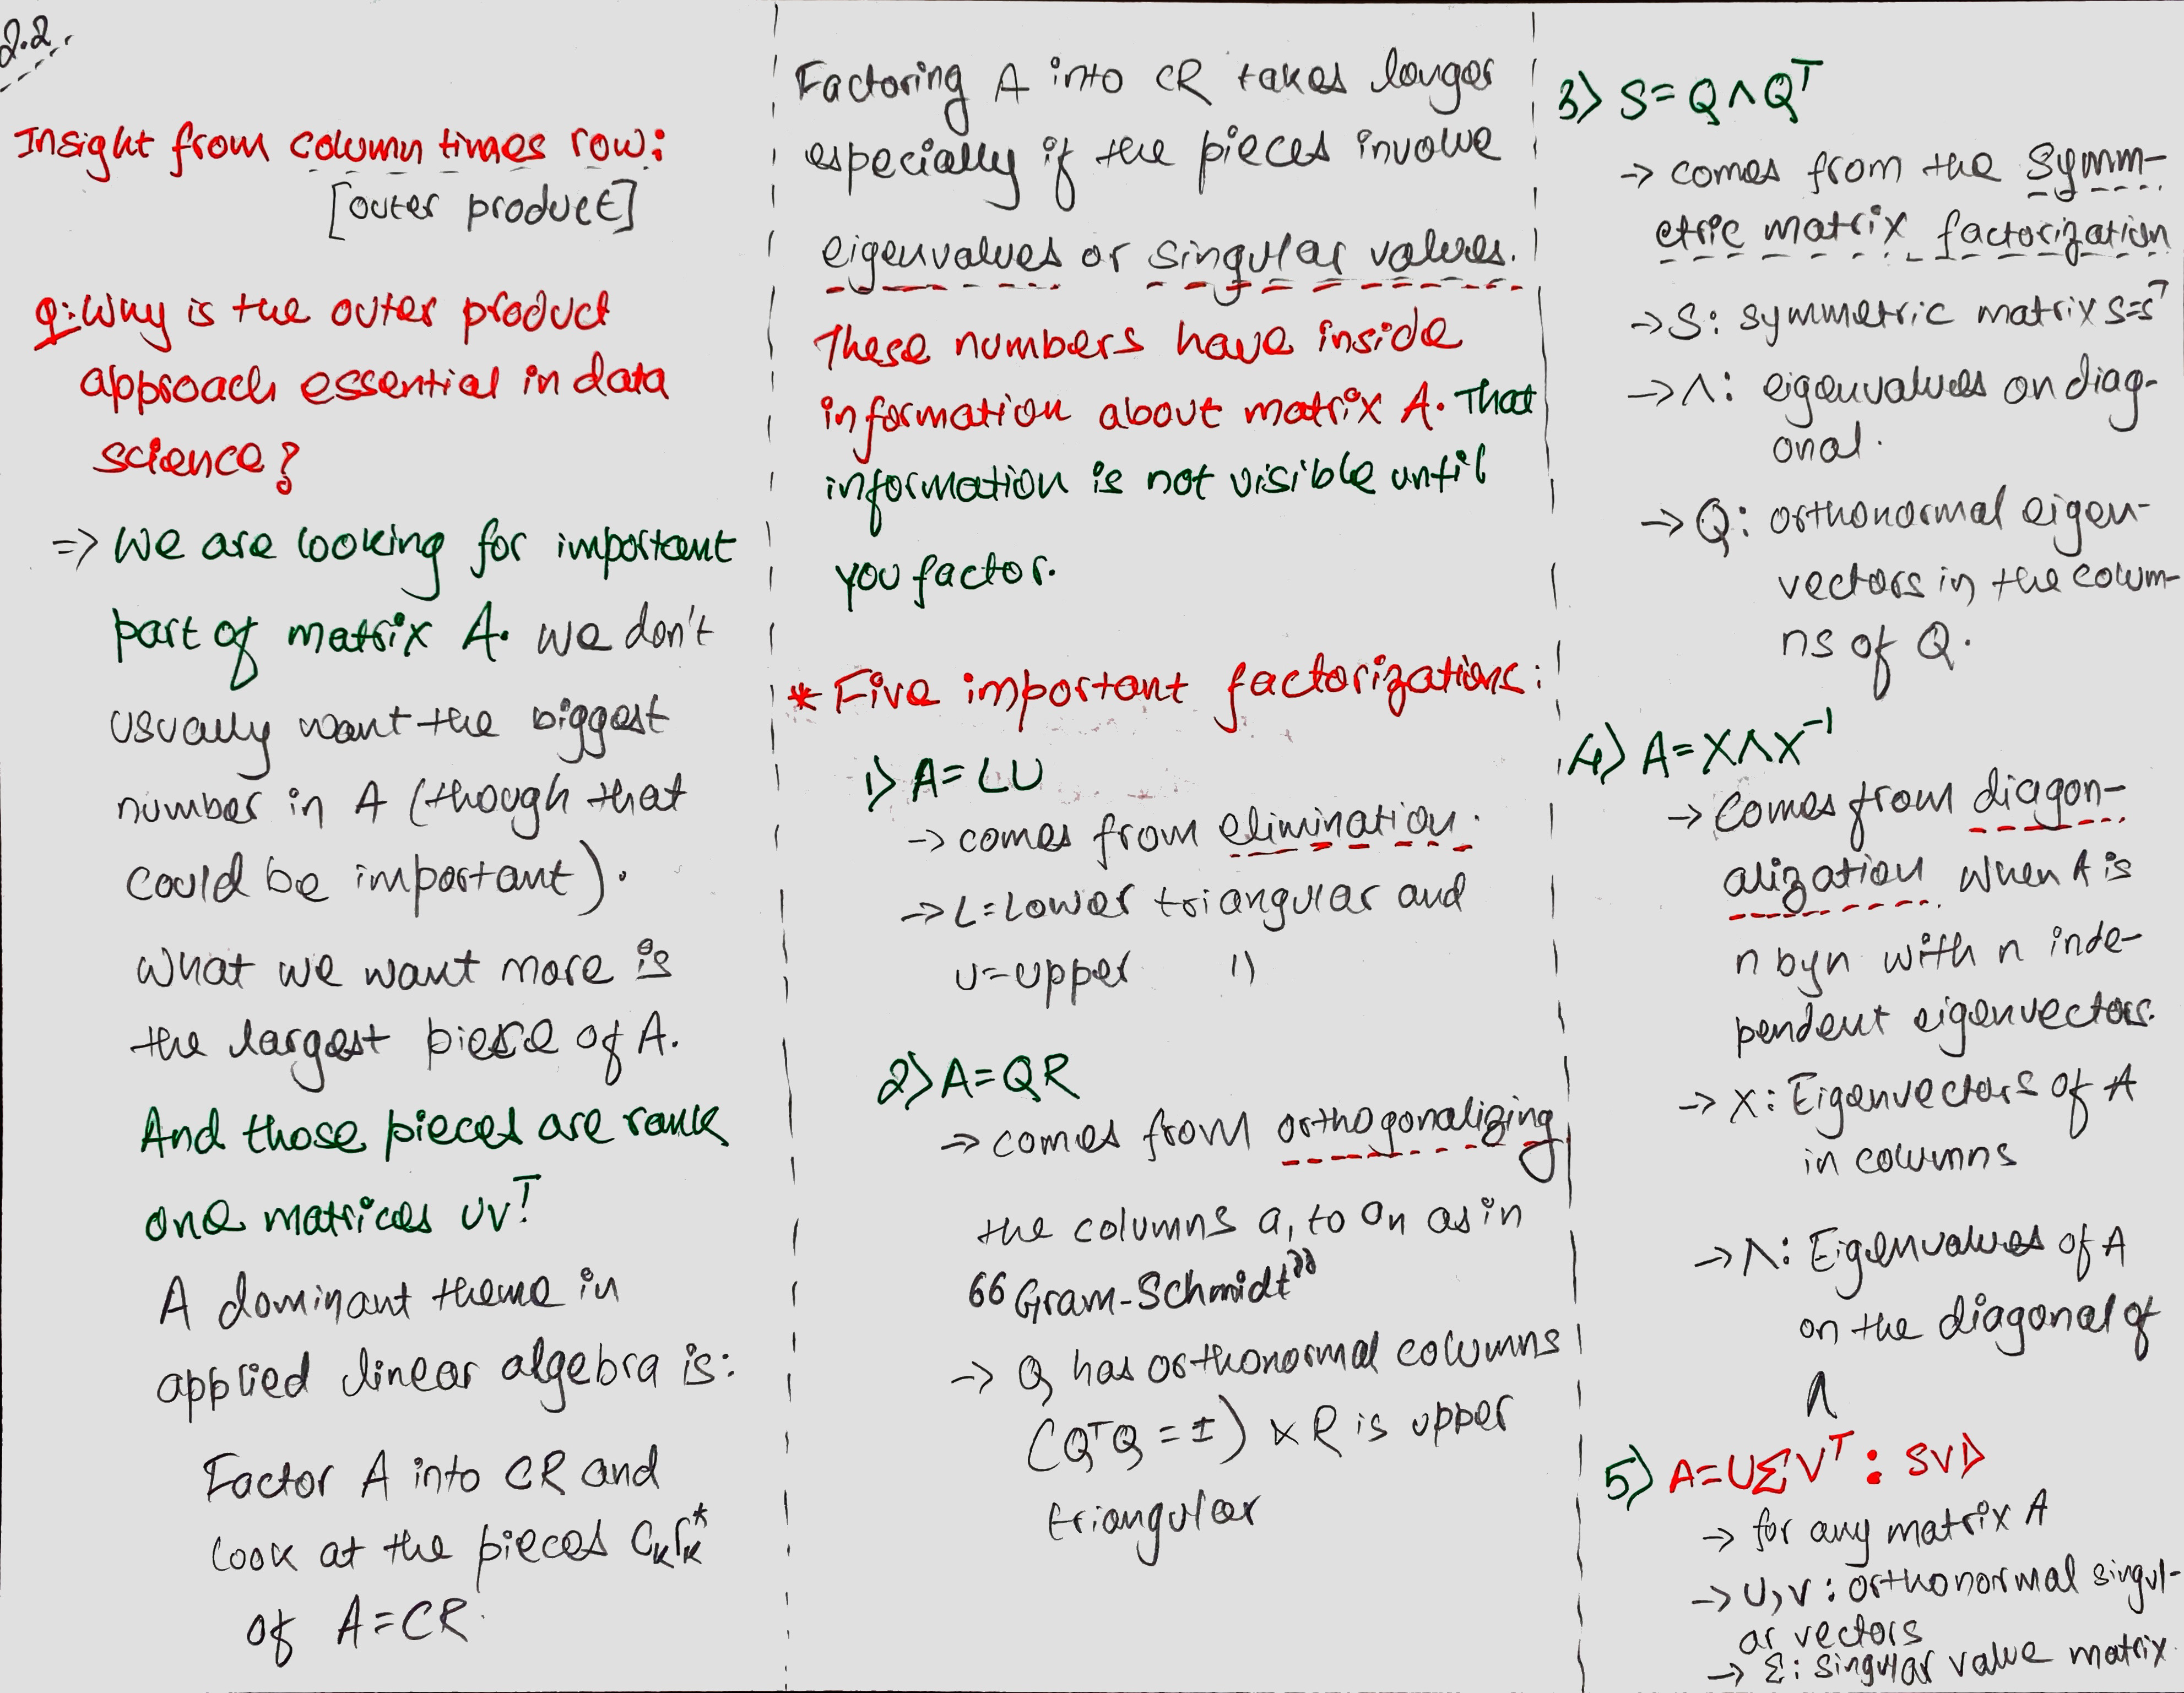 2.2.
Insight from column times row:
[outer product]
Q: Why is the outer product
approach essential in data
science?
=> We are looking for important
part of matrix A. We don't
usually want the biggest
number in A (though that
could be important).
What we want more is
the largest piece of A.
And those pieces are rank
one matrices uvᵀ.
A dominant theme in
applied linear algebra is:
Factor A into CR and
look at the pieces Cₖrₖ*
of A=CR.
Factoring A into CR takes longer
especially if the pieces involve
eigenvalues or singular values.
These numbers have inside
information about matrix A. That
information is not visible until
you factor.
* Five important factorizations:
1) A=LU
-> comes from elimination.
-> L=Lower triangular and
U=Upper "
2) A=QR
-> comes from orthogonalizing
the columns a₁ to aₙ as in
"Gram-Schmidt"
-> Q has orthonormal columns
(QᵀQ = I) x R is upper
triangular
3) S=QΛQᵀ
-> comes from the Symm-
etric matrix factorization
-> S: symmetric matrix S=Sᵀ
-> Λ: eigenvalues on diag-
onal.
-> Q: orthonormal eigen-
vectors in the colum-
ns of Q.
4) A=XΛX⁻¹
-> Comes from diagon-
alization when A is
n by n with n inde-
pendent eigenvectors.
-> X: Eigenvectors of A
in columns
-> Λ: Eigenvalues of A
on the diagonal of
Λ
5) A=UΣVᵀ: SVD
-> for any matrix A
-> U,V: orthonormal singul-
ar vectors
-> Σ: singular value matrix.